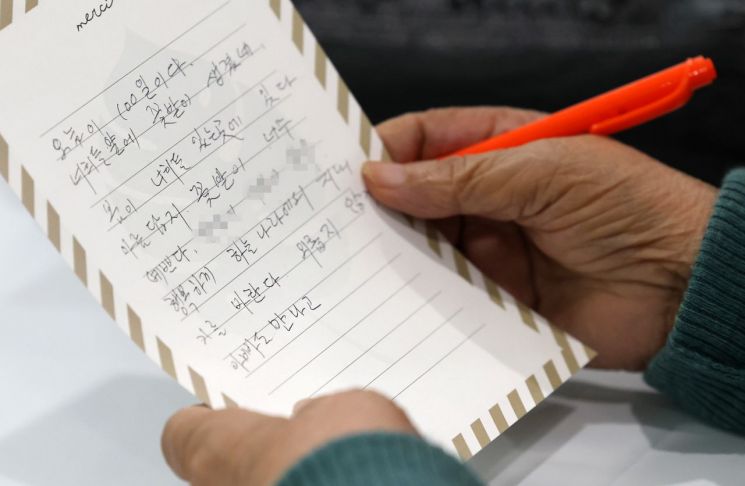 merci
오늘이 100일이다.
너희들 앞에 꽃밭이 생겼네.
봄이 너희들 있는곳에 있다
꽃밭이 너무
예쁘다.
행복하게 하늘나라에서 지내
기를 바란다 외롭지 않
만나고